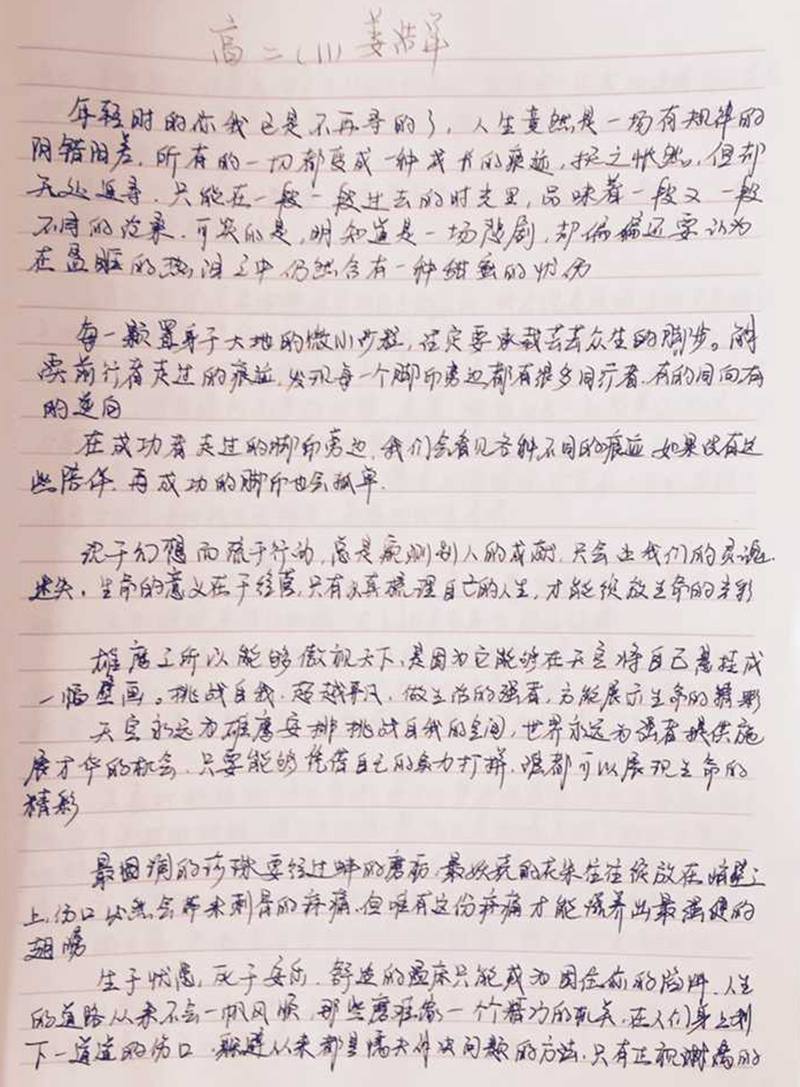 高二(11)姜浩洋
年轻时的你我已是不再寻的了，人生竟然是一场有规律的
阴错阳差，所有的一切都变成一种成长的痕迹，抚之怅然，但却
无处追寻．只能在一段一段过去的时光里，品味着一段又一段
不同的沧桑．可笑的是，明知道是一场戏剧，却偏偏还要认为
在盈眶的热泪之中仍然含有一种甜蜜的忧伤
每一颗置身于大地的微小沙粒，注定要承载芸芸众生的脚步。
前行者走过的痕迹，发现每一个脚印旁边都有很多同行者，有的同向有
的逆向
在成功者走过的脚印旁边，我们会看见各种不同的痕迹如果没有这
些陪伴．再成功的脚印也会孤单．
沉于幻想而疏于行动，总是观测别人的成就，只会让我们的灵魂
迷失．生命的意义在于经营，只有认真梳理自己的人生，才能绽放生命的光彩
雄鹰之所以能够傲视天下，是因为它能够在天空将自己悬挂成
一幅壁画。挑战自我．超越平凡，做生活的强者，方能展示生命的精彩
天空永远为雄鹰安排挑战自我的空间，世界永远为强者提供施
展才华的机会．只要能够凭借自己的实力打拼，谁都可以展现生命的
精彩
最圆润的珍珠要经过蚌的磨砺，最妖娆的花朵往往绽放在暗壁之
上，伤口必然会带来刺骨的疼痛，但唯有这份疼痛才能滋养出最强健的
翅膀
生于忧患，死于安乐．舒适的温床只能成为困住你的陷阱．人生
的道路从来不会一帆风顺，那些磨难像一个个精巧的机关，在人们身上刺
下一道道的伤口．躲避从来都是懦夫解决问题的方法，只有正视淋漓的